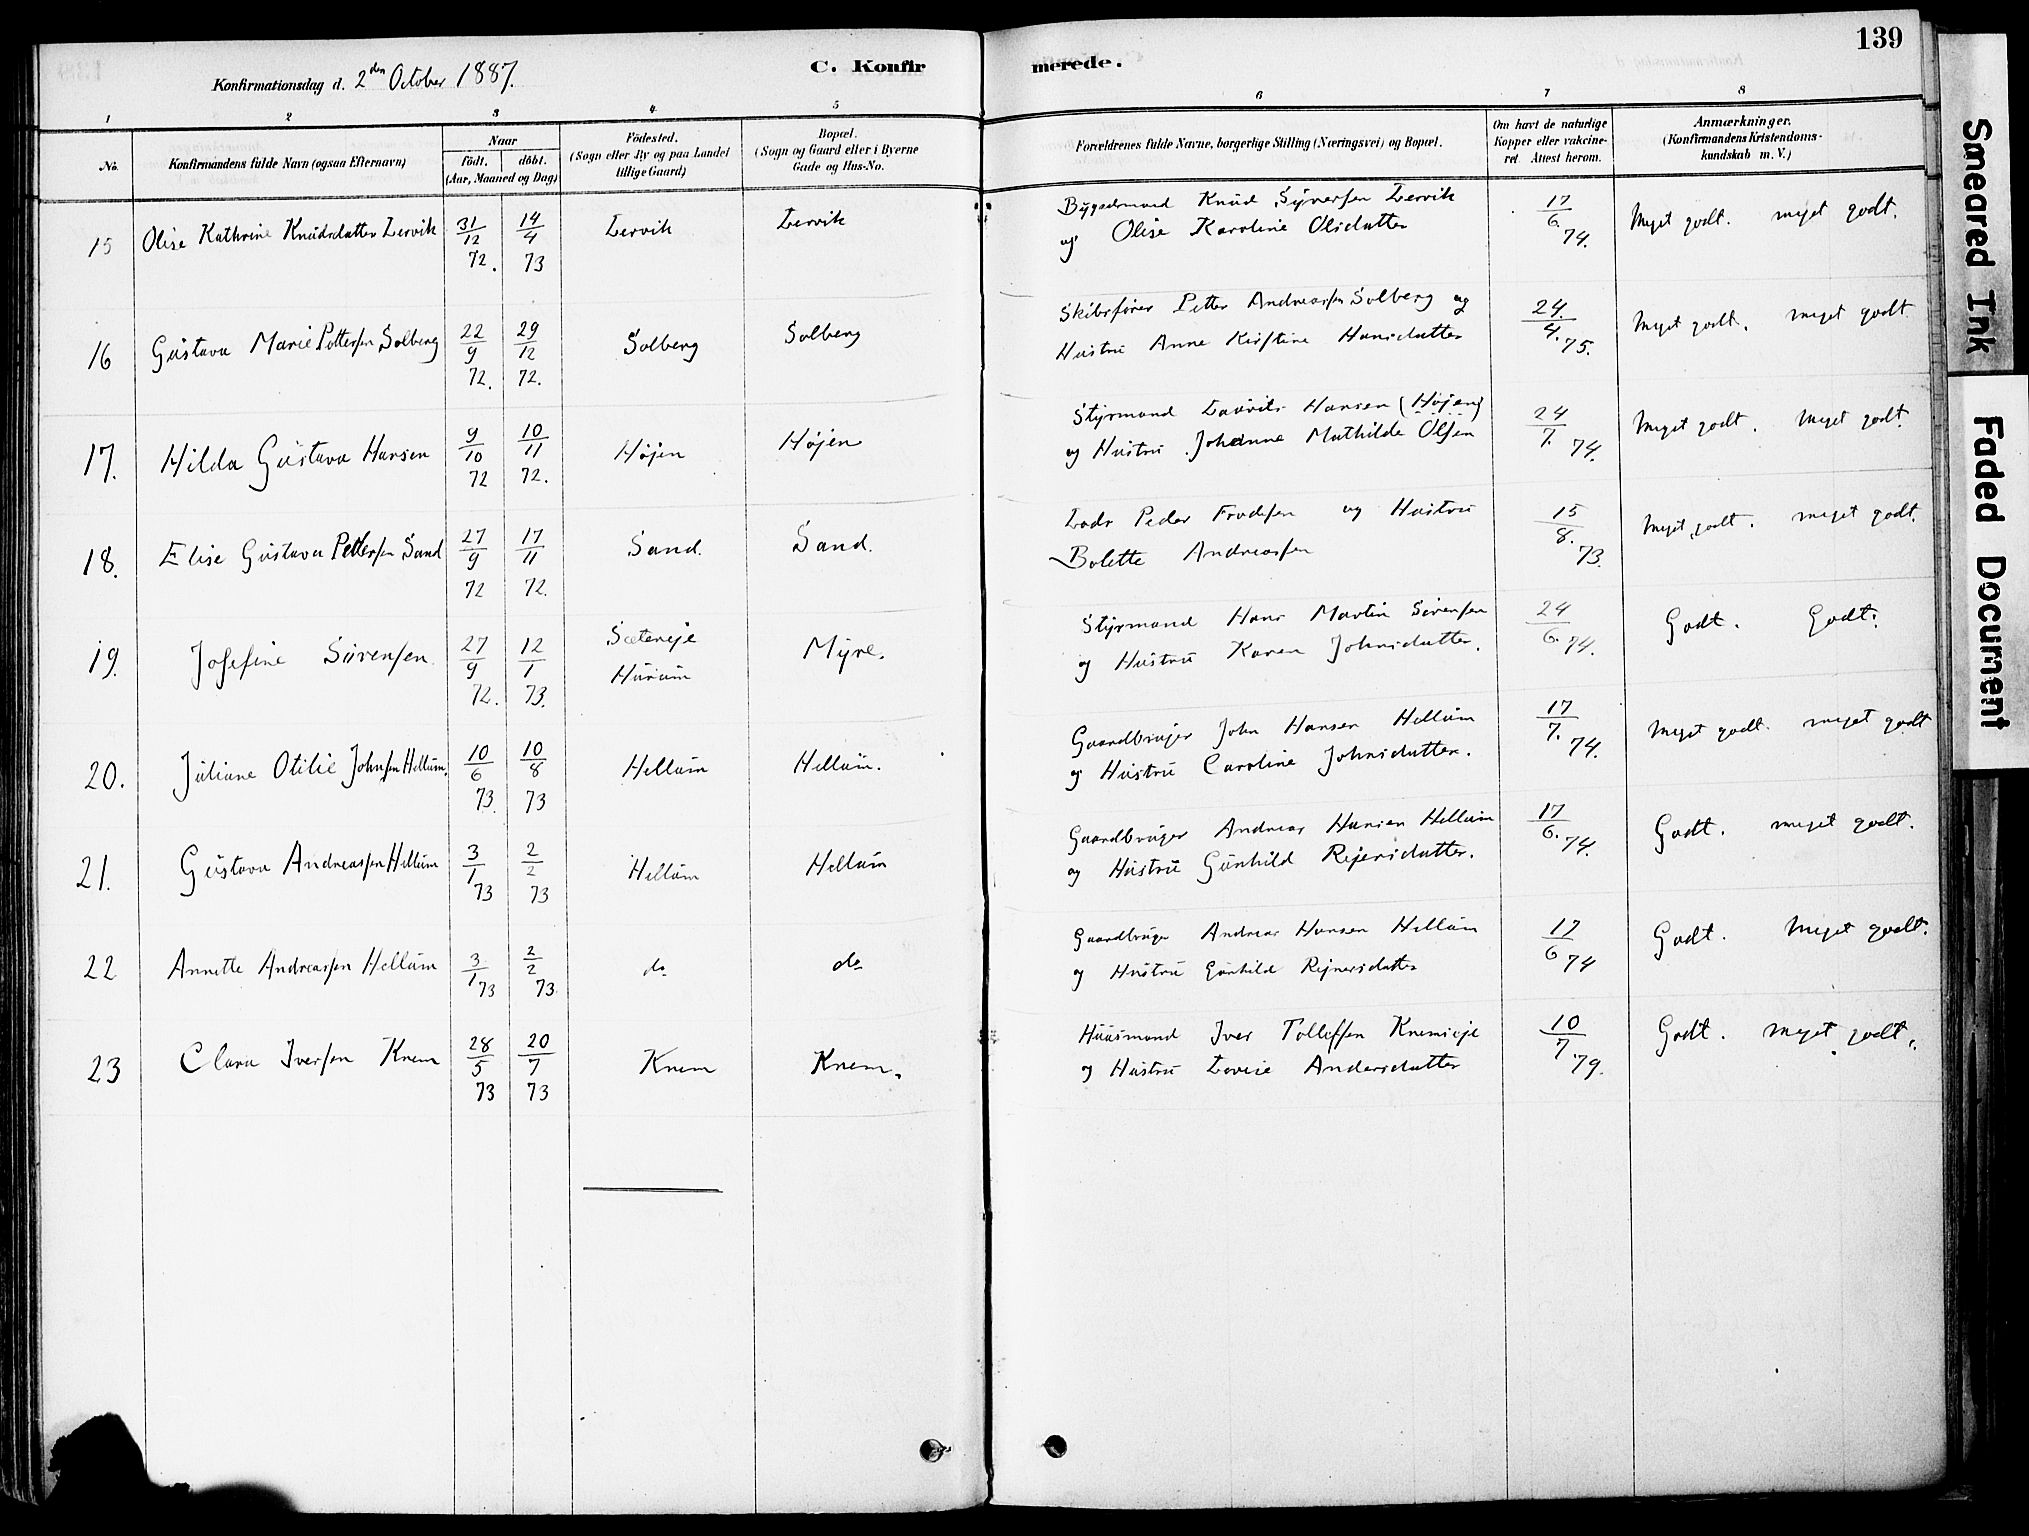 139
Konfirmationsdag d. 2den October 1887.
C. Konfirmerede.
1 2 3 4 5 6 7 8
No.
Konfirmandens fulde Navn (ogsaa Efternavn)
Naar
født. døbt.
(Aar, Maaned og Dag)
Fødested.
(Sogn eller By og paa Landet
tillige Gaard)
Bopæl.
(Sogn og Gaard eller i Byerne
Gade og Hus-No.
Forældrenes fulde Navne, borgerlige Stilling (Næringsvei) og Bopæl.
Om havt de naturlige
Kopper eller vakcine-
ret. Attest herom.
Anmærkninger.
(Konfirmandens Kristendoms-
kundskab m. V.)
15 Olise Kathrine Knudsdatter Lervik 31/12 72. 14/4 73 Lervik Lervik
Bygselmand Knud Synersen Lervik
og Olise Karoline Olsdatter
17/6 74. Meget godt. meget godt.
16 Gustava Marie Pettersen Solberg 22/9 72. 29/12 72. Solberg Solberg
Skibsfører Petter Andreassen Solberg og
Hustru Anne Kirstine Hansdatter
24/4. 75. Meget godt. meget godt
17. Hilda Gustava Hansen 9/10 72 10/11 72. Højen Højen
Styrmand Lauritz Hansen (Højen)
og Hustru Johanne Mathilde Olsen
24/7. 74. Meget godt. Meget godt.
18. Elise Gustava Pettersen Sand 27/9 72 17/11 72. Sand. Sand.
Lods Peder Frodesen og Hustru
Bolette Andreassen
15/8. 73. Meget godt. meget godt.
19. Josefine Sørensen 27/9 72. 12/1 73. Sætereje
Hurum Myre.
Styrmand Hans Martin Sørensen
og Hustru Karen Johnsdatter.
24/6. 74. Godt. Godt.
20. Juliane Otilie Johnsen Hellum. 10/6 73. 10/8 73 Hellum Hellum.
Gaardbruger John Hansen Hellum
og Hustru Caroline Johnsdatter.
17/7. 74. Meget godt. meget godt
21. Gustava Andreassen Hellum 3/1 73 2/2 73 Hellum Hellum
Gaardbruger Andreas Hansen Hellum
og Hustru Gunhild Rejersdatter.
17/6. 74. Godt. meget godt.
22 Annette Andreassen Hellum 3/1 73 2/2 73. do do
Gaardbruger Andreas Hansen Hellum
og Hustru Gunhild Rejnersdatter
17/6 74 Godt. Meget godt.
23 Clara Iversen Knem 28/5 73 20/7 73 Knem Knem.
Huusmand Iver Tollefsen Knemseje
og Hustru Lovise Andersdatter
10/7 79. Godt. meget godt.
Smeared Ink
Faded Document